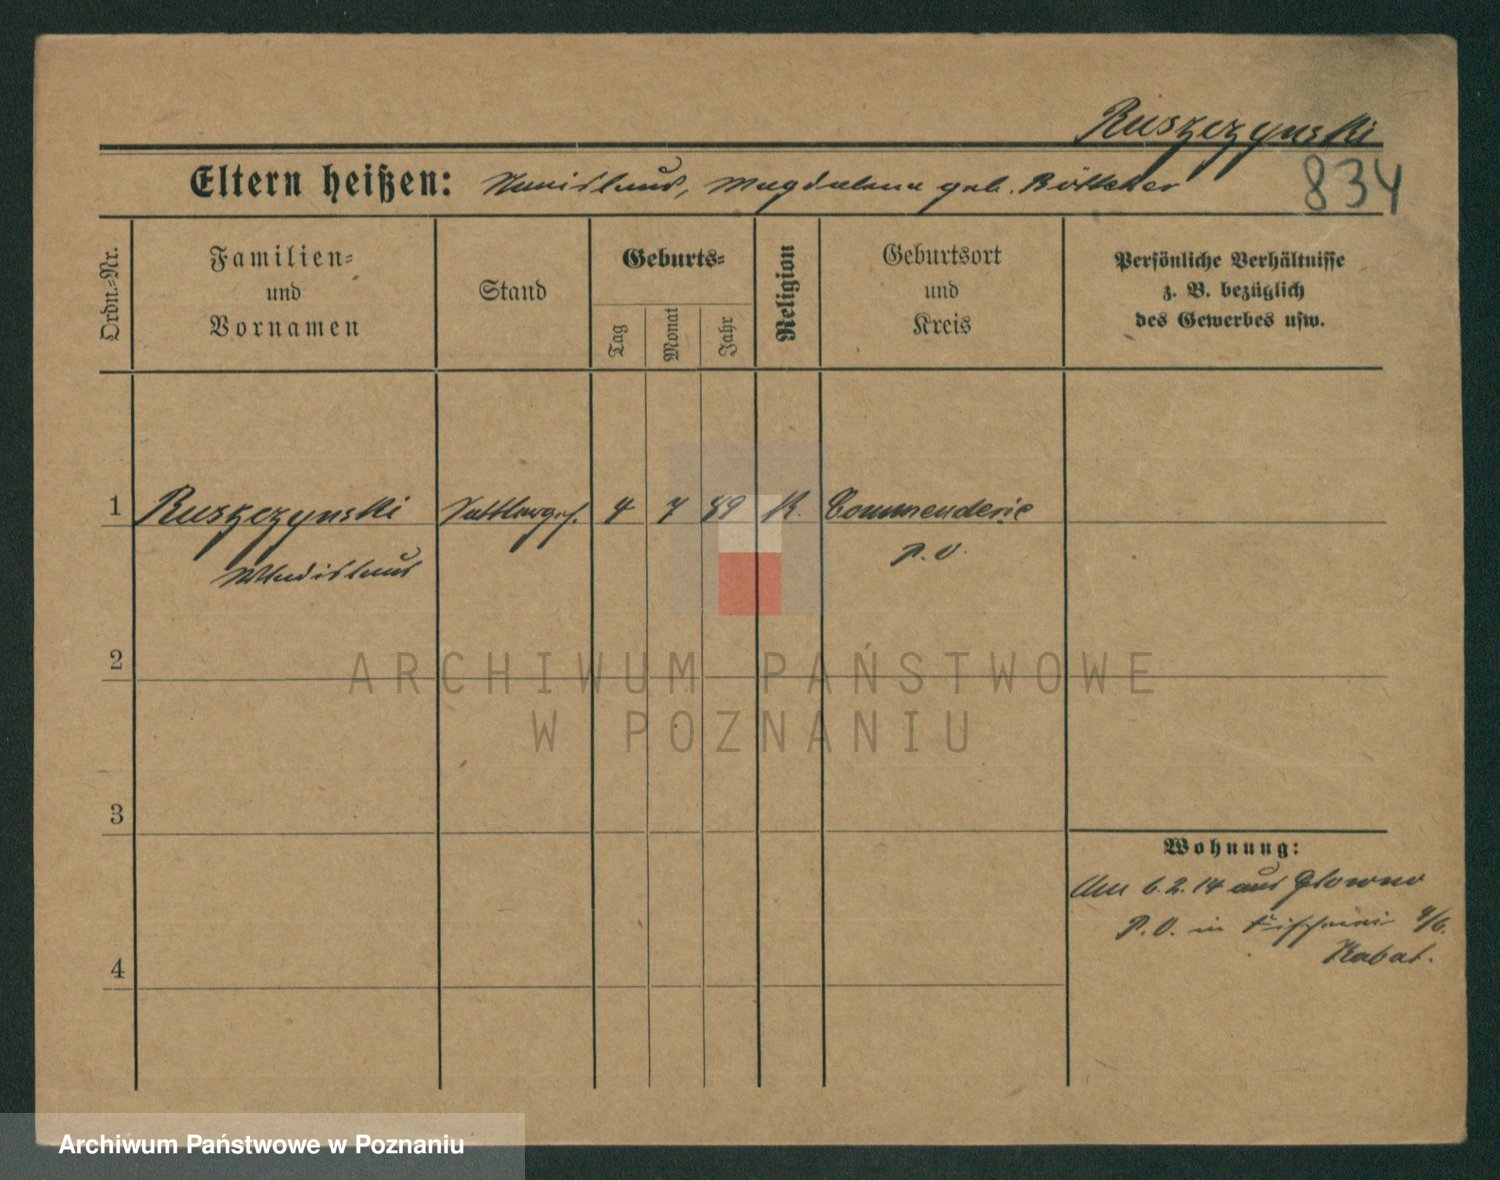 Ruszczynski
834
Eltern heißen: Stanislaus, Magdalena geb. Böttcher
Ordn.-Nr.
Familien-
und
Vornamen
Stand
Geburts-
Tag
Monat
Jahr
Religion
Geburtsort
und
Kreis
Persönliche Verhältnisse
z. B. bezüglich
des Gewerbes usw.
1 Ruszczynski Sattlerges. 4 7 89 K. Commenderie
Wladislaus P. O.
2
ARCHIWUM PAŃSTWOWE
W POZNANIU
3
Wohnung:
Am 6.2.14 aus Glowno
P. O. in Fischerei
4
Archiwum Państwowe w Poznaniu